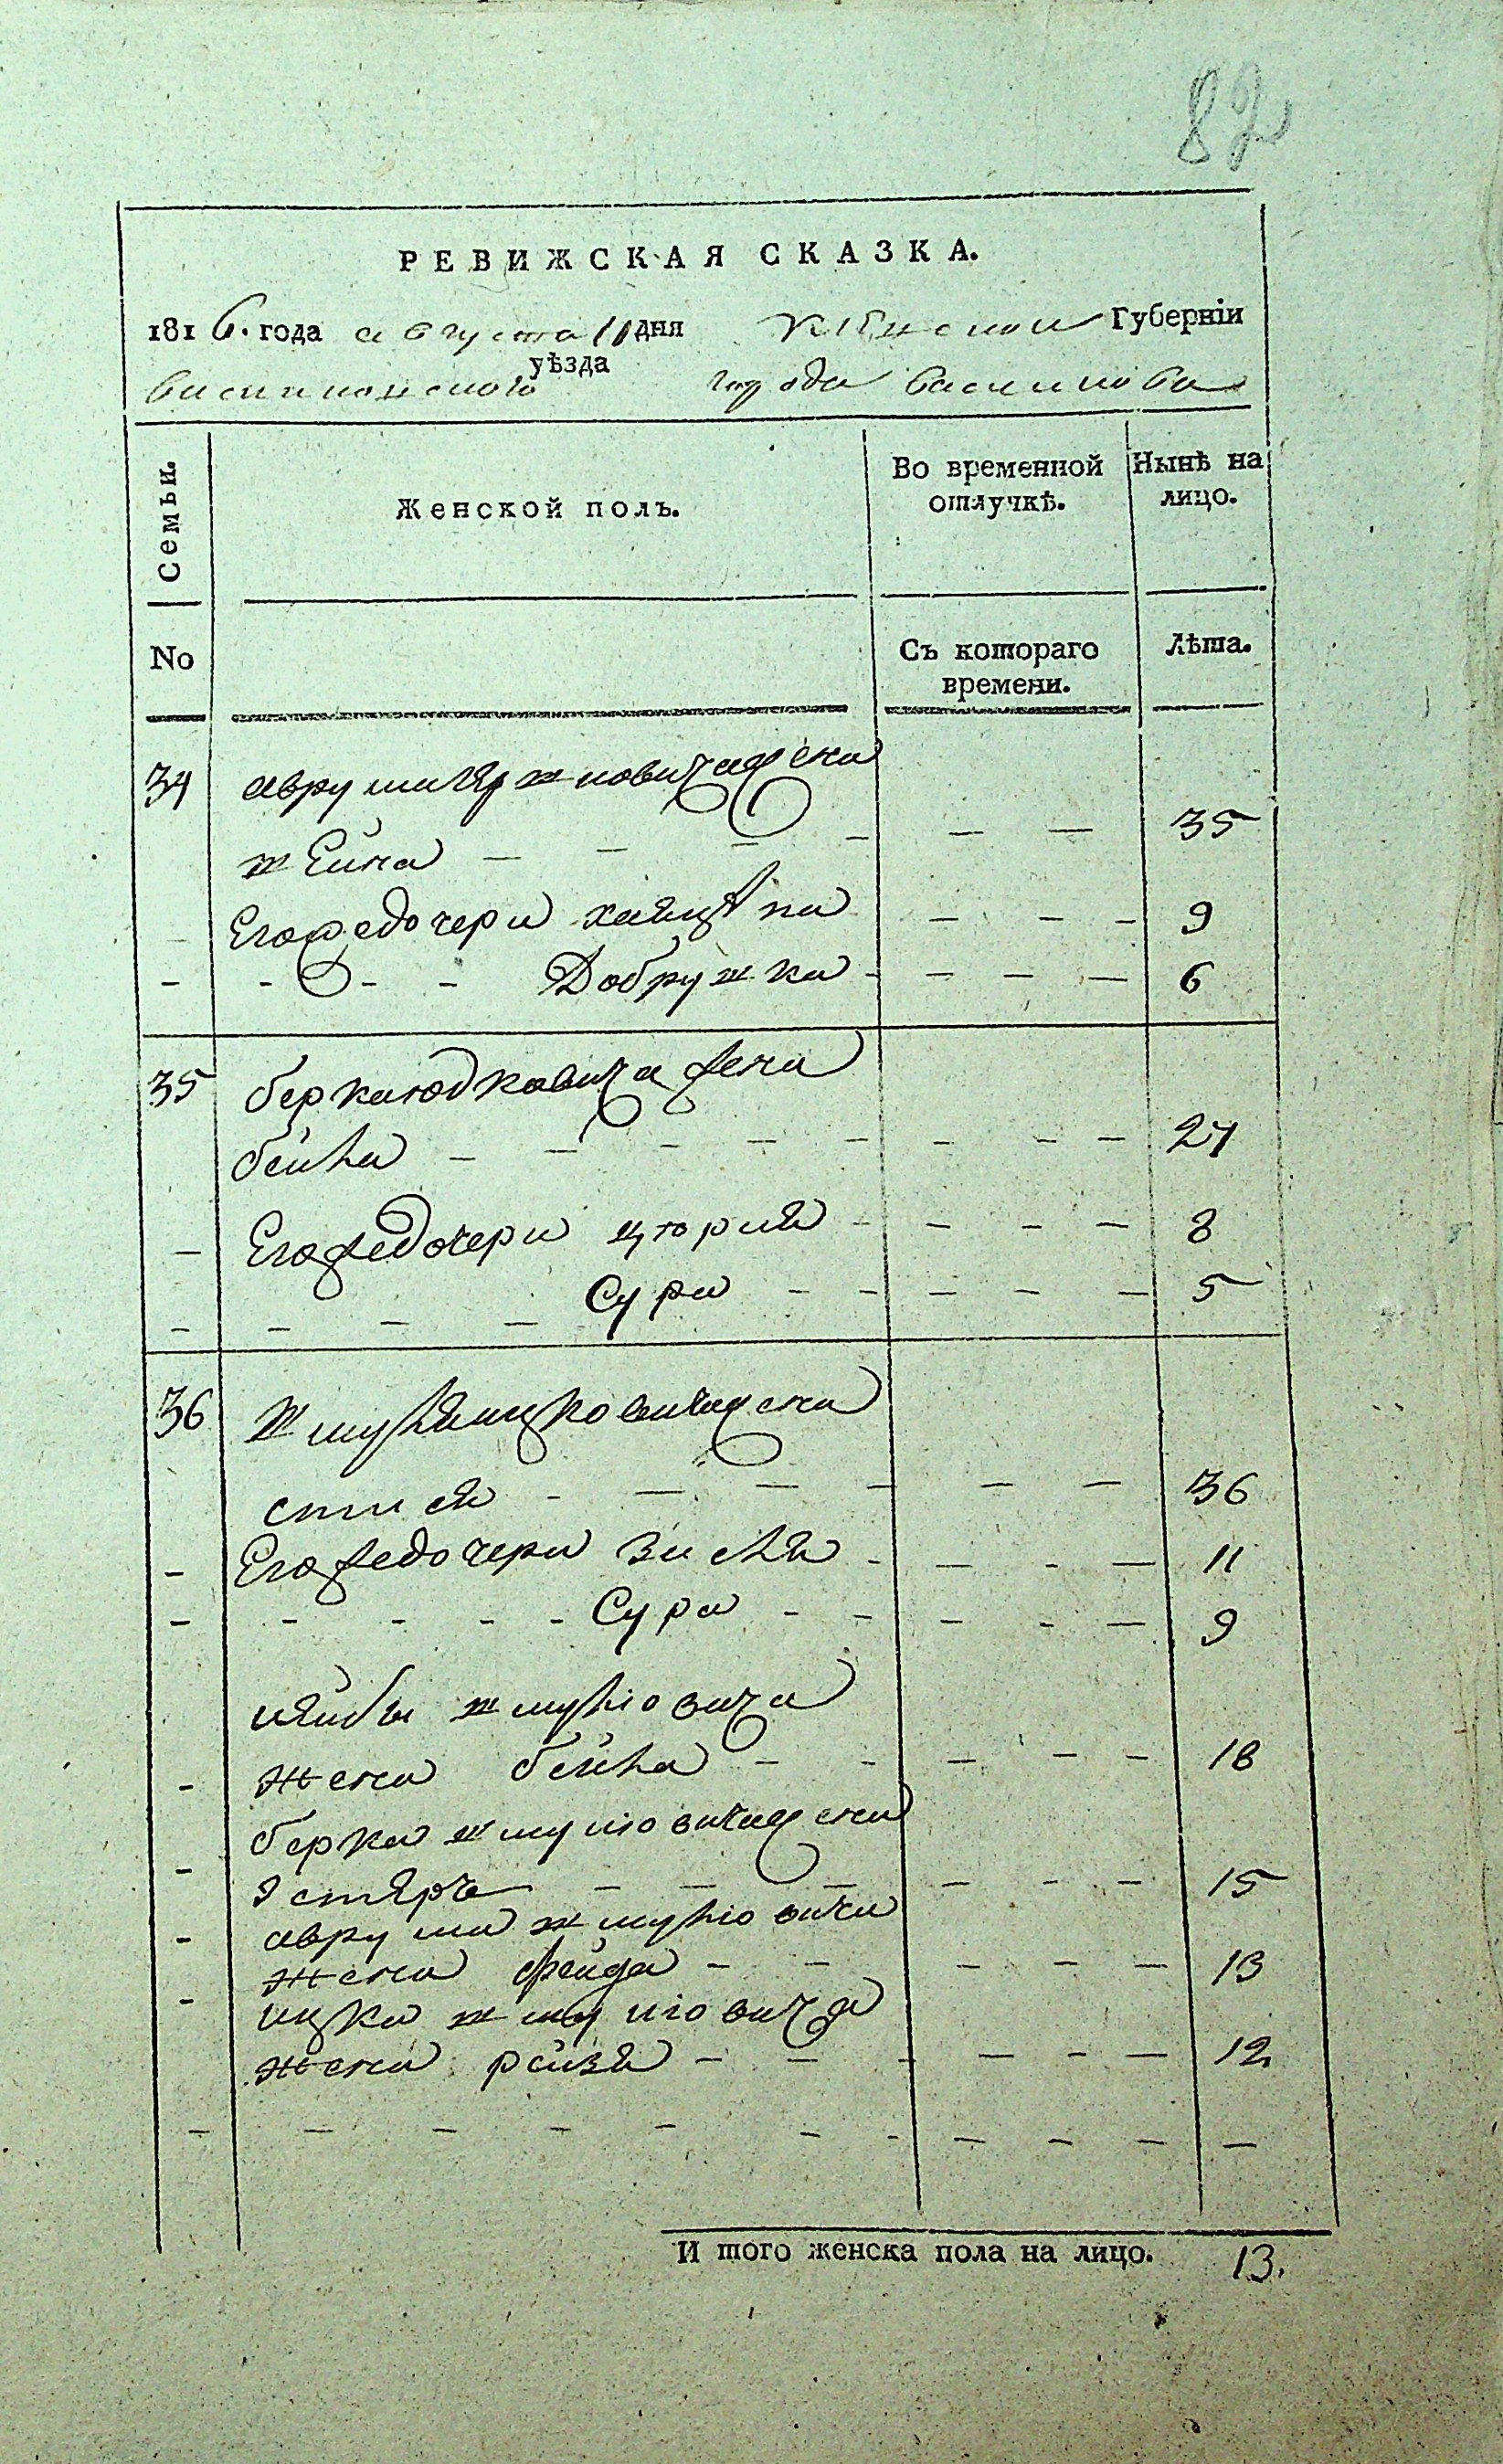 82
РЕВИЖСКАЯ СКАЗКА.
1816. года августа 11 дня Киевской Губерніи
уѣзда
васильковского города василькова
Семьи.
Женской полъ.
Во временной отлучкѣ.
Нынѣ на лицо.
No
Съ котораго времени.
Лѣта.
34
жена
жейна — — — — — — 35
Его же дочери — — — 9
- - - - Добружка - — — — 6
35 беркаюдковича жена
бейла — — — — — — — — 27
— Его же дочери цюрия - — — — 8
— — — — Сура — — — — — 5
36 шмуляицковича жена
стися — — — — — — 36
- Его же дочери висля - — - — 11
- - - - - Сура - - — - — 9
лейбы шмулiовича
- жена бейла — - — — — 18
берка шмулiовича жена
- эстеръ — — — — — — 15
- аврума шмулiовича
жена фейга — — — — — 13
- ицка шмулiовича
жена рейзя — — - — — — 12
- — — — — — - — — — —
И того женска пола на лицо. 13.